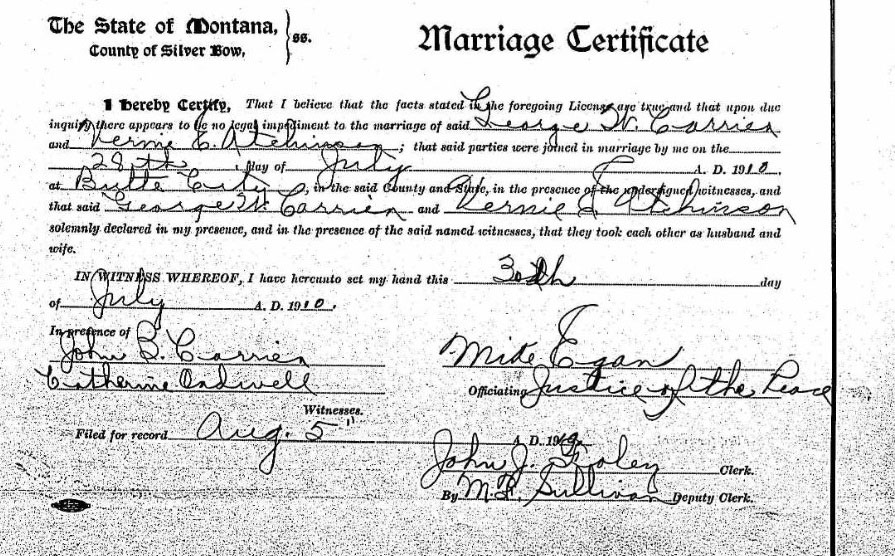 The State of Montana,
County of Silver Bow,
ss.
Marriage Certificate
I Hereby Certify, That I believe that the facts stated in the foregoing License are true and that upon due
inquiry there appears to be no legal impediment to the marriage of said George W. Carrier
and Vernie E. Atchinson; that said parties were joined in marriage by me on the
28th day of July A. D. 1910,
at Butte City, in the said County and State, in the presence of the undersigned witnesses, and
that said George W. Carrier and Vernie E. Atchinson
solemnly declared in my presence, and in the presence of the said named witnesses, that they took each other as husband and
wife.
IN WITNESS WHEREOF, I have hereunto set my hand this 30th day
of July A. D. 1910.
In presence of
John B. Carrier
Mike Egan
Catherine
Officiating Justice of the Peace
Witnesses.
Filed for record Aug. 5" A. D. 1910.
John J. Foley Clerk.
By M. F. Sullivan Deputy Clerk.